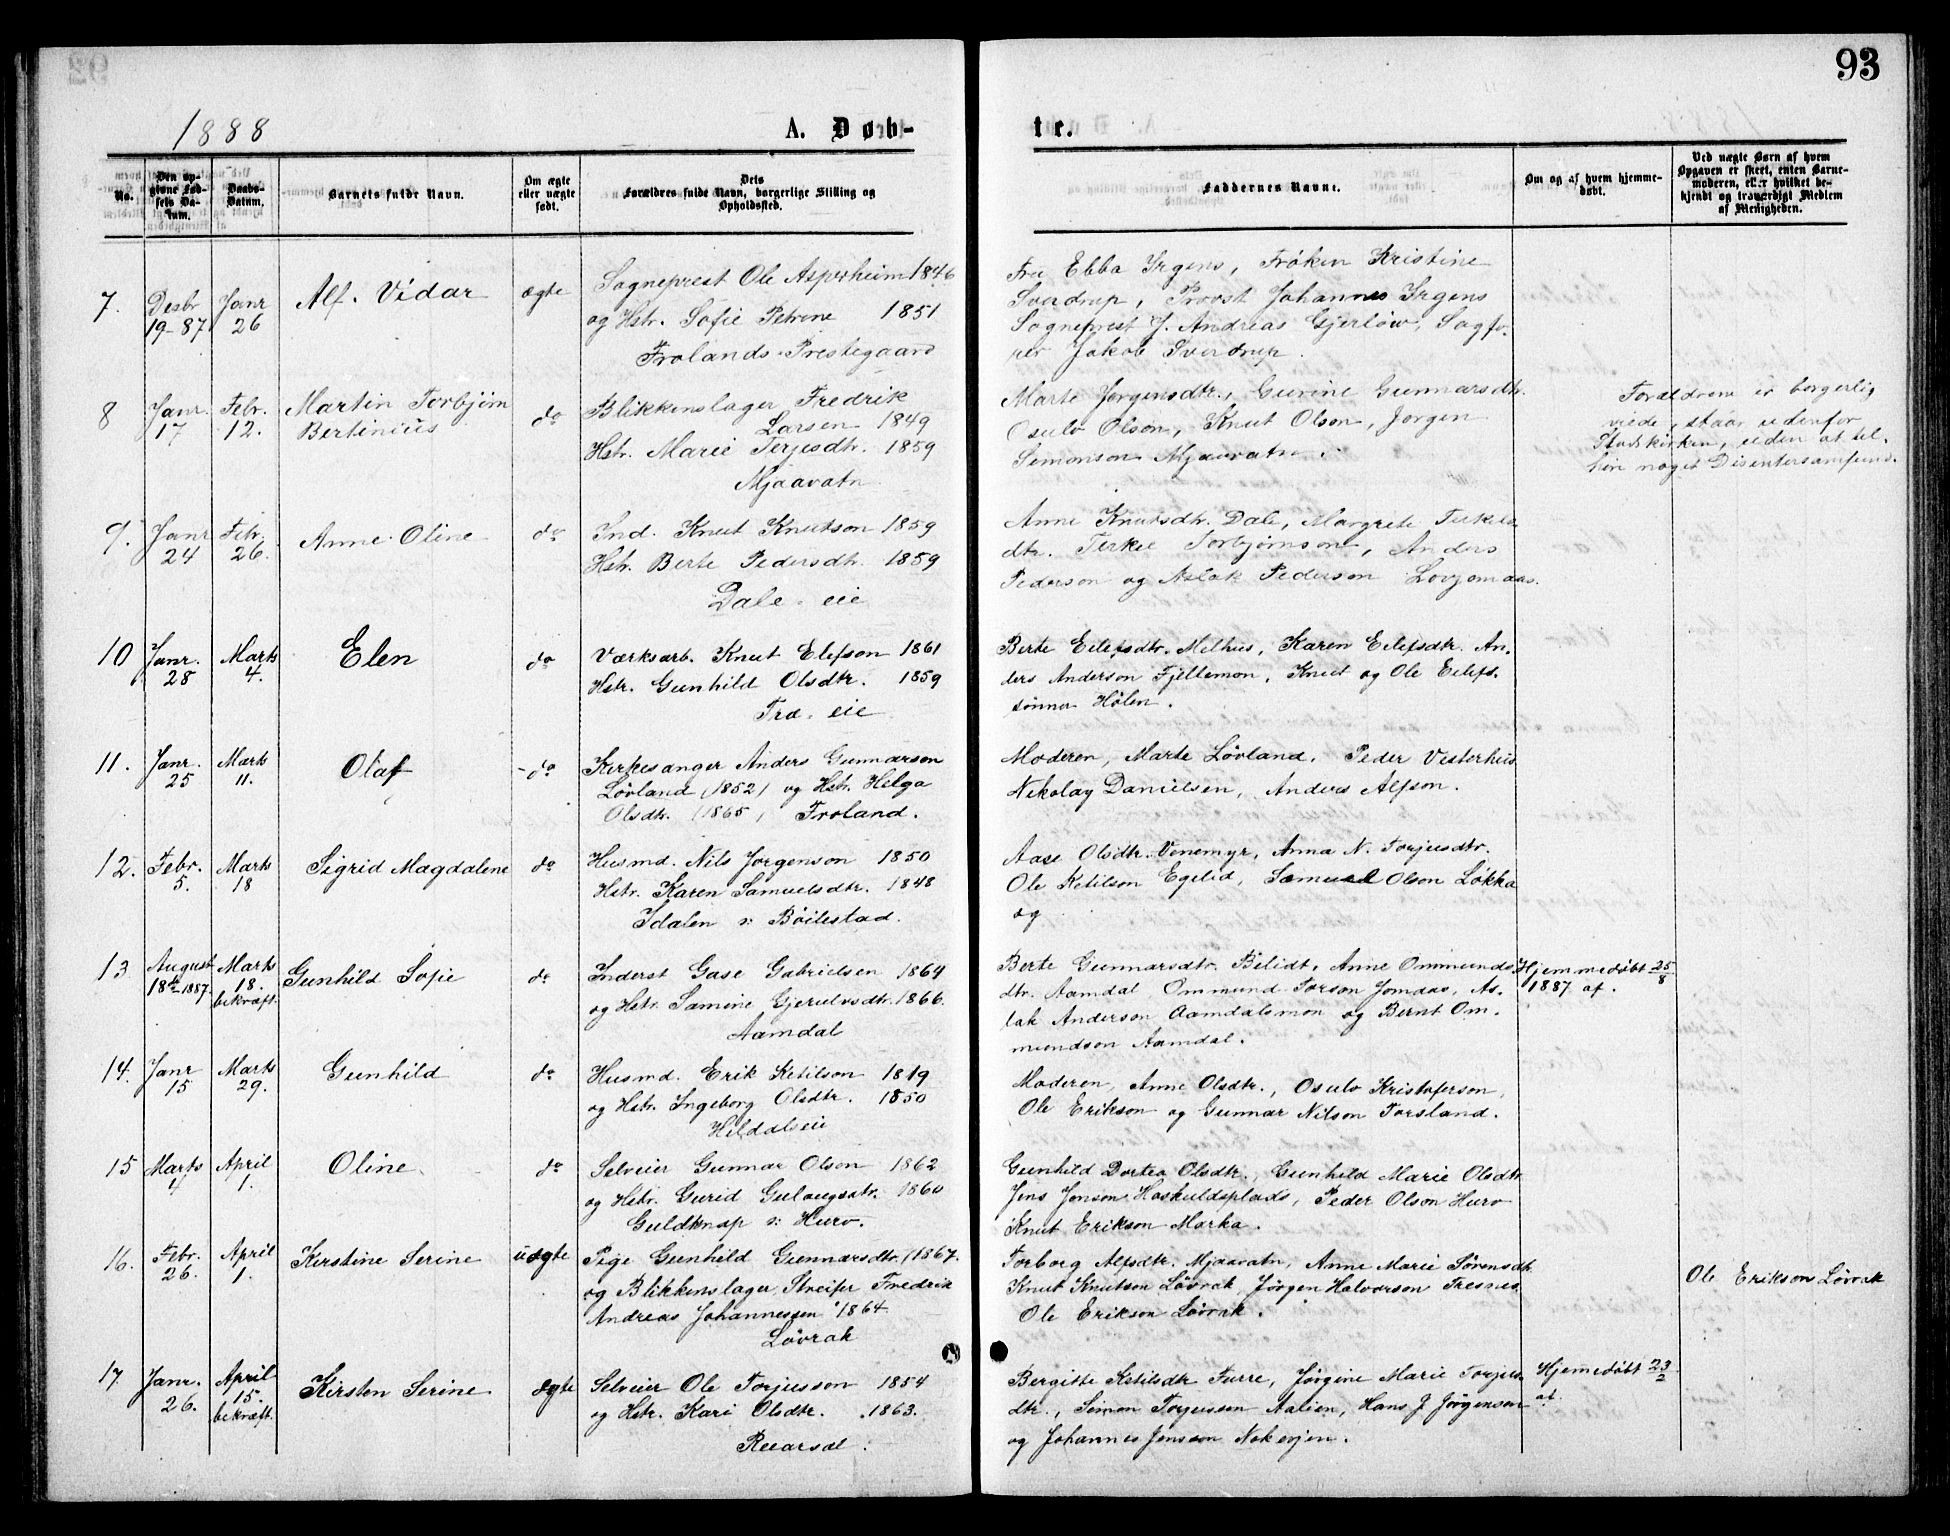 93
1888
A. Døb-
te.
No.
Den op-
givne Fød-
sels Da-
tum.
Daabs-
Datum.
Barnets fulde Navn.
Om ægte
eller uægte
født.
Dets
Forældres fulde Navn, borgerlige Stilling og
Opholdssted.
Faddernes Navne.
Om og af hvem hjemme-
døbt.
Ved uægte Børn af hvem
Opgaven er skeet, enten Barne-
moderen, eller hvilket be-
kjendt og troværdigt Medlem
af Menigheden.
7.
Desbr
19-87
Janr
26
Alf. Vidar
ægte
Sogneprest Ole Asperheim 1846
og Hstr. Sofie Petrine 1851
Frolands Prestegaard
Fru Ebba Irgens, Frøken Kristine
Sverdrup, Provst Johannes Irgens
Sogneprest J. Andreas Gjerløw, Sagfø-
rer Jakob Sverdrup.
8
Janr.
17
Febr.
12.
Martin Torbjørn
Bertinius
do
Blikkenslager Fredrik
Larsen 1849
Hstr. Marie Terjesdtr. 1859
Mjaavatn
Marte Jørgensdtr., Gurine Gunnarsdtr.
Osulv Olson, Knut Olson, Jørgen
Simonson Mjaavatn.
Forældrene er borgerlig
viede, staar udenfor
Statskirken, uden at til-
høre noget Disentersamfund.
9.
Janr
24
Febr.
26.
Anne Oline
do
Ind. Knut Knutson 1859
Hstr. Berte Pedersdtr. 1859
Dale-eie
Anne Knutsdtr. Dale, Margrete Terkels
dtr. Terkel Torbjørnson, Anders
Pederson og Aslak Pederson Løvjomaas.
10
Janr.
28
Marts
4.
Elen
do
Værksarb. Knut Elefson 1861
Hstr. Gunhild Olsdtr. 1859
Træ-eie
Berte Eilefsdtr. Melhus, Karen Eilefsdtr. An-
ders Anderson Fjellemon, Knut og Ole Eilefs-
sønner Hølen.
11.
Janr.
25
Marts
11.
Olaf
do
Kirkesanger Anders Gunnarson
Løvland (1852) og Hstr. Helga
Olsdtr. (1865) Froland.
Moderen, Marte Løvland. Peder Vesterhus
Nikolay Danielsen, Anders Alfson.
12.
Febr.
5.
Marts
18
Sigrid Magdalene
do
Husmd. Nils Jørgenson 1850
Hstr. Karen Samuelsdtr. 1848
Idalen s: Bøilestad.
Aase Olsdtr. Venemyr, Anna N. Torjusdtr.
Ole Ketilson Egelid, Samuel Olson Løkka
og
13
August
18de 1887.
Marts
18.
bekræft.
Gunhild Sofie
do
Inderst Gase Gabrielsen 1864
og Hstr. Samine Gjerulvsdtr. 1866.
Aamdal
Berte Gunnarsdtr. Bilidt, Anne Ommunds
dtr. Aamdal Ommund Torson Jomaas, As-
lak Anderson Aamdalsmon og Bernt Om-
mundson Aamdal.
Hjemmedøbt 25/8
1887 af.
14.
Janr
15
Marts
29.
Gunhild
do
Husmd. Erik Ketilson 1819
og Hstr. Ingeborg Olsdtr. 1850
Hildalseie
Moderen, Anne Olsdtr., Osulv Kristoferson,
Ole Erikson og Gunnar Nilson Torsland.
15
Marts
4
April
1.
Oline
do
Selveier Gunnar Olson 1862
og Hstr. Gurid Gulaugsdtr. 1860
Guldknap s: Hurv.
Gunhild Dortea Olsdtr., Gunhild Marie Olsdtr
Jens Jenson Haskuldsplads, Peder Olson Hurv
Knut Erikson Marka.
16.
Febr.
26.
April
1.
Kirstine Serine
uægte
Pige Gunhild Gunnarsdtr. (1867.
og Blikkenslager, Streifer Fredrik
Andreas Johannessen 1864.
Løvrak
Torborg Alfsdtr. Mjaavatn, Anne Marie Sørensdtr.
Knut Knutson Løvrak, Jørgen Halvorson Tresnes
Ole Erikson Løvrak.
Ole Erikson Løvrak
17
Janr.
26.
April
15.
bekræft.
Kirsten Serine
ægte
Selveier Ole Torjusson 1854
og Hstr. Kari Olsdtr. 1863.
Reiarsdl
Bergitte Ketilsdtr Furre, Jørgine Marie Torjus-
dtr., Simon Torjussen Aalien, Hans J Jørgensen
og Johannes Jensson Nakevjen.
Hjemedøbt 23/2
af.